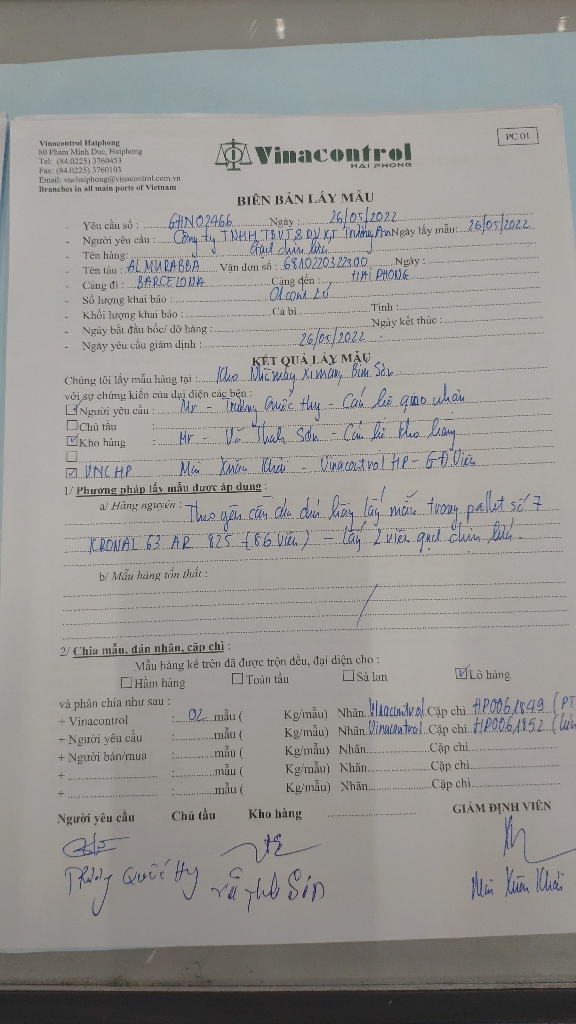 Vinacontrol Haiphong
80 Pham Minh Duc, Haiphong
Tel: (84.0225) 3760453
Fax: (84.0225) 3760103
Email: vnchaiphong@vinacontrol.com.vn
Branches in all main ports of Vietnam
Vinacontrol
HAI PHONG
PC 01
BIÊN BẢN LẤY MẪU
- Yêu cầu số : GHNO2466 Ngày : 26/05/2022
- Người yêu cầu : Công ty TNHH TBVT & DV KT Trường An Ngày lấy mẫu: 26/05/2022
- Tên hàng : Gạch chịu lửa
- Tên tàu : AL MURABBA Vận đơn số : 6810220322300 Ngày :
- Cảng đi : BARCELONA Cảng đến : HAI PHONG
- Số lượng khai báo : 01 cont
- Khối lượng khai báo : Cả bì : Tịnh :
- Ngày bắt đầu bốc/ dỡ hàng : Ngày kết thúc :
- Ngày yêu cầu giám định : 26/05/2022
KẾT QUẢ LẤY MẪU
Chúng tôi lấy mẫu hàng tại : Kho Nhà máy Xi măng Bỉm Sơn
với sự chứng kiến của đại diện các bên :
☑ Người yêu cầu : Mr - Trương Quốc Huy - Cán bộ giao nhận
☐ Chủ tầu :
☑ Kho hàng : Mr - Vũ Thanh Sơn - Cán bộ kho hàng
☐
☑ VNCHP Mai Xuân Khải - Vinacontrol HP - GĐ Viên
1/ Phương pháp lấy mẫu được áp dụng :
a/ Hàng nguyên : Theo yêu cầu chủ hàng lấy mẫu trong pallet số 7
KRONAL 63 AR 825 (86 viên) - lấy 2 viên gạch chịu lửa.
b/ Mẫu hàng tổn thất :
2/ Chia mẫu, dán nhãn, cặp chì :
Mẫu hàng kể trên đã được trộn đều, đại diện cho :
☐ Hầm hàng ☐ Toàn tầu ☐ Sà lan ☑ Lô hàng
và phân chia như sau :
+ Vinacontrol : 02 mẫu ( Kg/mẫu) Nhãn Vinacontrol Cặp chì HP0061849 (PT
+ Người yêu cầu : mẫu ( Kg/mẫu) Nhãn Vinacontrol Cặp chì HP0061852
+ Người bán/mua : mẫu ( Kg/mẫu) Nhãn Cặp chì
+ : mẫu ( Kg/mẫu) Nhãn Cặp chì
+ : mẫu ( Kg/mẫu) Nhãn Cặp chì
Người yêu cầu Chủ tầu Kho hàng GIÁM ĐỊNH VIÊN
Trương Quốc Huy Vũ Thanh Sơn Mai Xuân Khải